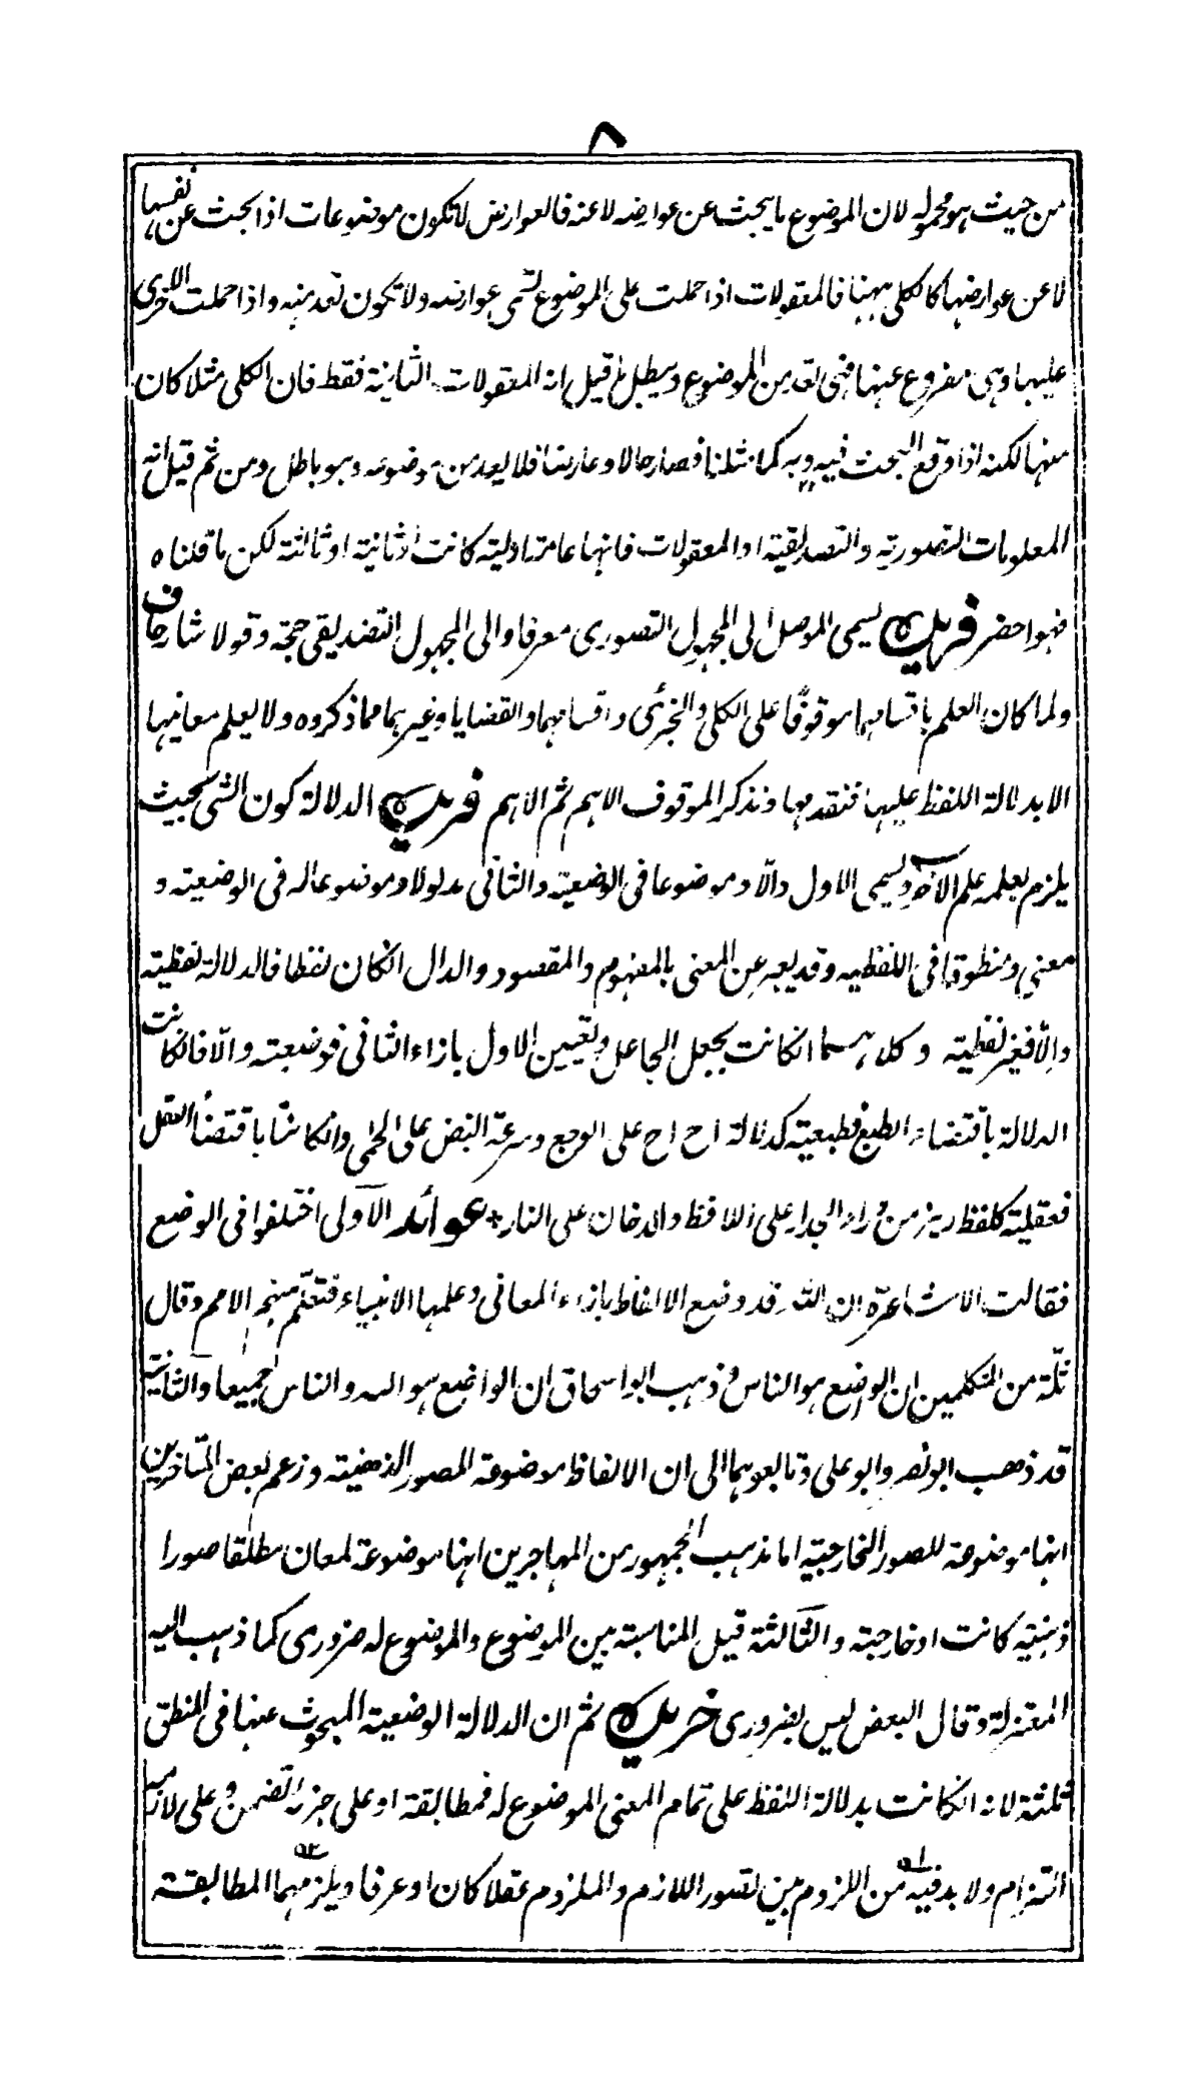 ٨
من حيث هو محموله لان الموضوع ما يبحث عن عوارضه لا عنه فالعوارض لا تكون موضوعات اذا بحث عن نفسها
لا عن عوارضها كالكلى ههنا فالمعقولات اذا حملت على الموضوع تسمى عوارضه ولا تكون تعد منه واذا حملت الاخرى
عليها وهى مفروع عنها فهى تعد من الموضوع ويبطل ما قيل انه المعقولات الثانية فقط فان الكلى مثلا كان
منها لكنه اذا وقع البحث فيه وبه كما مثلنا فصار حالا وعارضا فلا يعد من موضوعه وهو باطل ومن ثم قيل انه
المعلومات التصورية والتصديقية او المعقولات فانها عامة اولية كانت او ثانية او ثالثة لكن ما قلناه
فهو احضر فريده يسمى الموصل الى المجهول التصورى معرفا والى المجهول التصديقى حجة وقولا شارحا ف
ولما كان العلم باقسامهما موقوفًا على الكلى والجزئى واقسامهما والقضايا وغيرهما مما ذكروه ولا يعلم معانيها
الا بدلالة اللفظ عليها فنقدمها ونذكر الموقوف الاهم ثم الاهم فريده الدلالة كون الشى بحيث
يلزم بعلمه علم الآخر ويسمى الاول دالّا وموضوعا فى الوضعية والثانى مدلولا وموضوعا له فى الوضعية و
معنى ومنطوقا فى اللفظيه وقد يعبر عن المعنى بالمفهوم والمقصود والدال انكان لفظا فالدلالة لفظية
والّا فغير لفظية وكلاهما انكانت بجعل الجاعل وتعيين الاول بازاء الثانى فوضعية والّا فانكانت
الدلالة باقتضاء الطبع فطبيعية كدلالة اح اح على الوجع وسرعة النبض على الحمى وانكانت باقتضاء العقل
فعقلية كلفظ ديز من وراء الجدار على اللافظ والدخان على النار * عوائد الاولى اختلفوا فى الوضع
فقالت الاشاعرة ان الله قد وضع الالفاظ بازاء المعانى وعلمها الانبياء فتعلّم منهم الامم وقال
ثلّة من المتكلمين ان الواضع هو الناس وذهب ابو اسحاق ان الواضع هو الله والناس جميعا والثانية
قد ذهب ابو نصر وابو على وتابعوهما الى ان الالفاظ موضوعة للصور الذهنية وزعم بعض المتاخرين
انها موضوعة للصور الخارجية اما مذهب الجمهور من المهاجرين انها موضوعة لمعان مطلقا صورا
ذهنية كانت او خارجية والثالثة قيل المناسبة بين الموضوع والموضوع له ضرورى كما ذهب اليه
المعتزلة وقال البعض ليس بضرورى خريده ثم ان الدلالة الوضعية المبحوث عنها فى المنطق
ثلثة لانه انكانت بدلالة اللفظ على تمام المعنى الموضوع له فمطابقة او على جزئه تضمن وعلى لازمه
التزام ولا بد فيه من اللزوم بين تصور اللازم والملزوم عقلا كان او عرفا ويلزمهما المطابقة